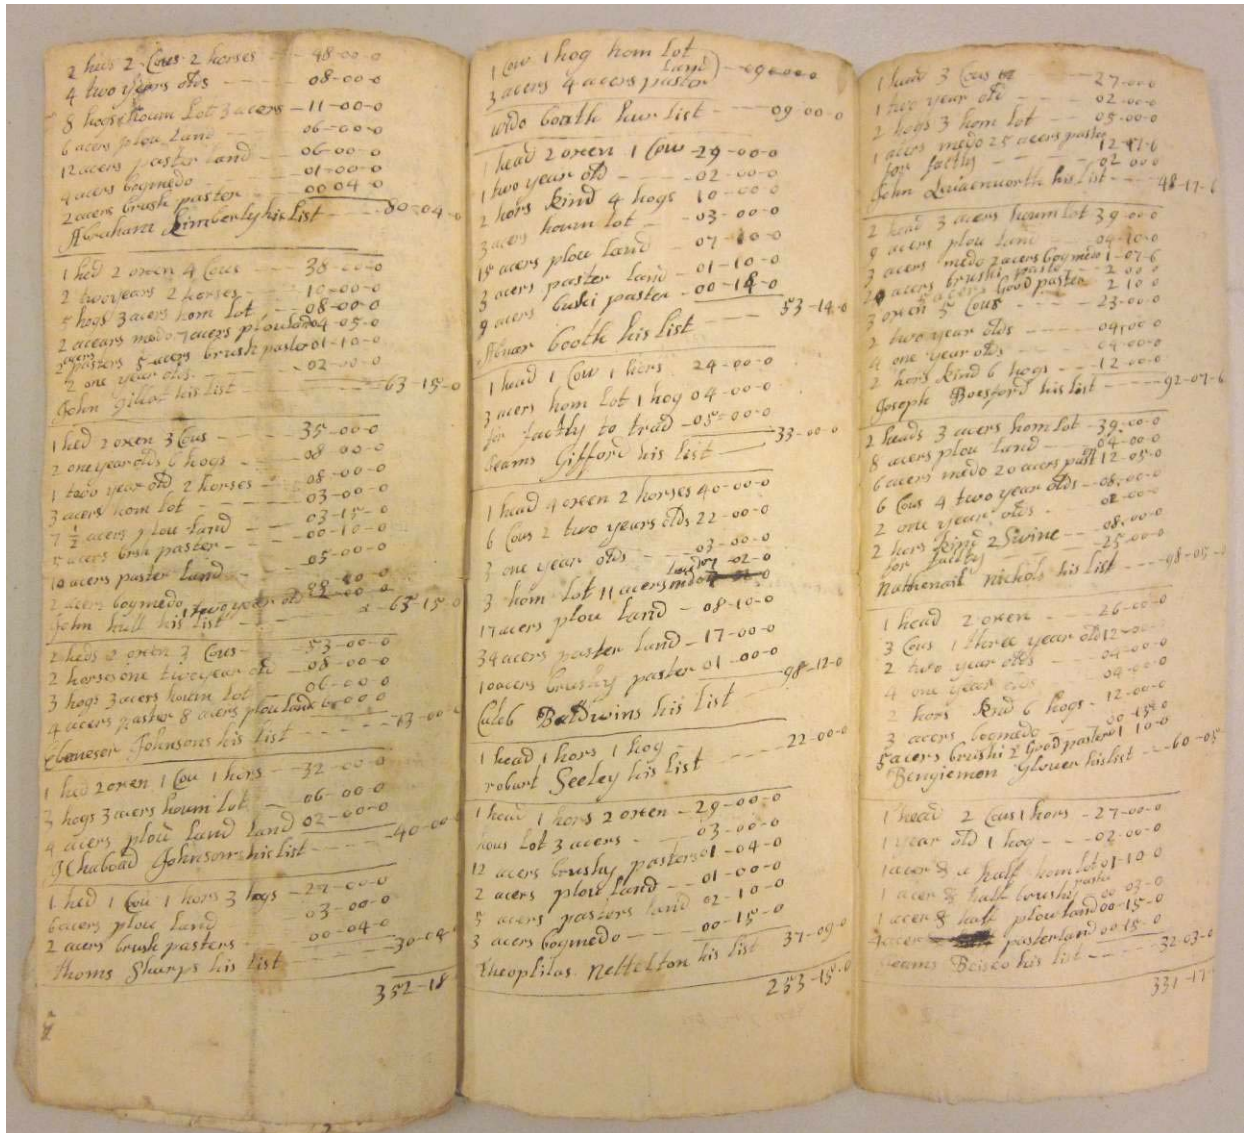 2 heds 2 Cous 2 horses 48-00-0
4 two years olds 08-00-0
8 hogs houm Lot 3 acers 11-00-0
6 acers plou Land 06-00-0
12 acers paster land 06-00-0
4 acers bogmedo 01-00-0
2 acers brush paster 00 04-0
Abraham Kimberly his List 80-04-0
1 hed 2 oxen 4 Cous 38-00-0
2 two years 2 horses 10-00-0
5 hogs 3 acers hom lot 08-00-0
2 acears medo 7 acers plouland 04-05-0
2 acers pasters 5 acers brush paster 01-10-0
2 one year olds 02-00-0
John Gillot his list 63-15-0
1 hed 2 oxen 3 Cous 35-00-0
2 one year olds 6 hogs 08 00-0
1 two year old 2 horses 08-00-0
3 acers hom lot 03-00-0
7 1/2 acers plou land 03-15-0
5 acers brsh paster 00-10-0
10 acers paster Land 05-00-0
2 acers bogmedo
1 two year old
John hull his list 65-15 0
2 heds 2 oxen 3 Cous 53-00-0
2 horses one two year old 08-00-0
3 hogs 3 acers houm lot 06-00-0
4 acers paster 8 acers plouland 6-00-0
Ebeneser Johnsons his list
1 hed 2 oxen 1 Cou 1 hors 32-00-0
3 hogs 3 acers houm lot 06-00-0
4 acers plou Land Land 02-00-0
Ichaboad Johnsons his list 40-00
1 hed 1 Cou 1 hors 3 hogs 27-00-0
6 acers plou land 03-00-0
2 acers brush pasters 00-04-0
thoms Sharps his list 30-04
352-18
1 Cow 1 hog hom lot
3 acers 4 acers paster Land
wido booth hur list 09 00-0
1 head 2 oxen 1 Cow 29-00-0
1 two year old 02-00-0
2 hors kind 4 hogs 10-00-0
3 acers houm lot 03-00-0
15 acers plou land 07-10-0
3 acers paster Land 01-10-0
9 acers bushi paster 00-14-0
Abnar booth his list 53-14-0
1 head 1 Cow 1 hors 24-00-0
3 acers hom lot 1 hog 04-00-0
for factly to trad 05-00-0
Seams Gifford his list 33-00-0
1 head 4 oxen 2 horses 40-00-0
6 Cous 2 two years olds 22-00-0
3 one year olds 03-00-0
3 hom lot 11 acers
17 acers plou Land 08-10-0
34 acers paster land 17-00-0
10 acers brushy paster 01-00-0
Caleb Baldwins his list 98-12-0
1 head 1 hors 1 hog
robart Seeley his list 22-00-0
1 head 1 hors 2 oxen 29-00-0
hous lot 3 acers 03-00-0
12 acers brushy pasters 01-04-0
2 acers plou land 01-00-0
5 acers pasters land 02-10-0
3 acers bogmedo 00-15-0
theophilas Nettelton his list 37-09-0
253-15-0
1 head 3 Cous 27-00-0
1 two year old 02-00-0
2 hogs 3 hom lot 05-00-0
1 acers medo 25 acers paster 12-17-6
for factly 02 00-0
John his list 48-17-6
2 head 3 acers houm lot 39-00-0
9 acers plou land 04-10-0
3 acers medo 2 acers bogmedo 1-07-6
acers brushi paster 2 00 0
5 acers good paster 2 10 0
3 oxen 5 Cous 23-00-0
2 two year olds 04-00-0
4 one year olds 04-00-0
2 hors kind 6 hogs 12-00-0
Joseph Boesford his list 92-07-6
2 heads 3 acers hom lot 39-00-0
8 acers plou land 04-00-0
6 acers medo 20 acers past 12-05-0
6 Cous 4 two year olds
2 one year olds 02-00-0
2 hors kind 2 Swine 08-00-0
for factly 25-00-0
Nathenail nichols his list 98-05-0
1 head 2 oxen 26-00-0
3 Cous 1 three year old 12-00-0
2 two year olds 04-00-0
4 one year olds 04-00-0
2 hors kind 6 hogs 12-00-0
3 acers bogmedo 00-15-0
5 acers brushi 2 Good paster 1 10-0
Bengiemon Glover his list 60-05
1 head 2 Cous 1 hors 27-00-0
1 year old 1 hog 02-00-0
1 acer & a half hom lot 01-10 0
1 acer & half brushy paster 00 03-0
1 acer & half plou land 00-15-0
paster land 00 15 0
Seams his list 32-03-0
331-17